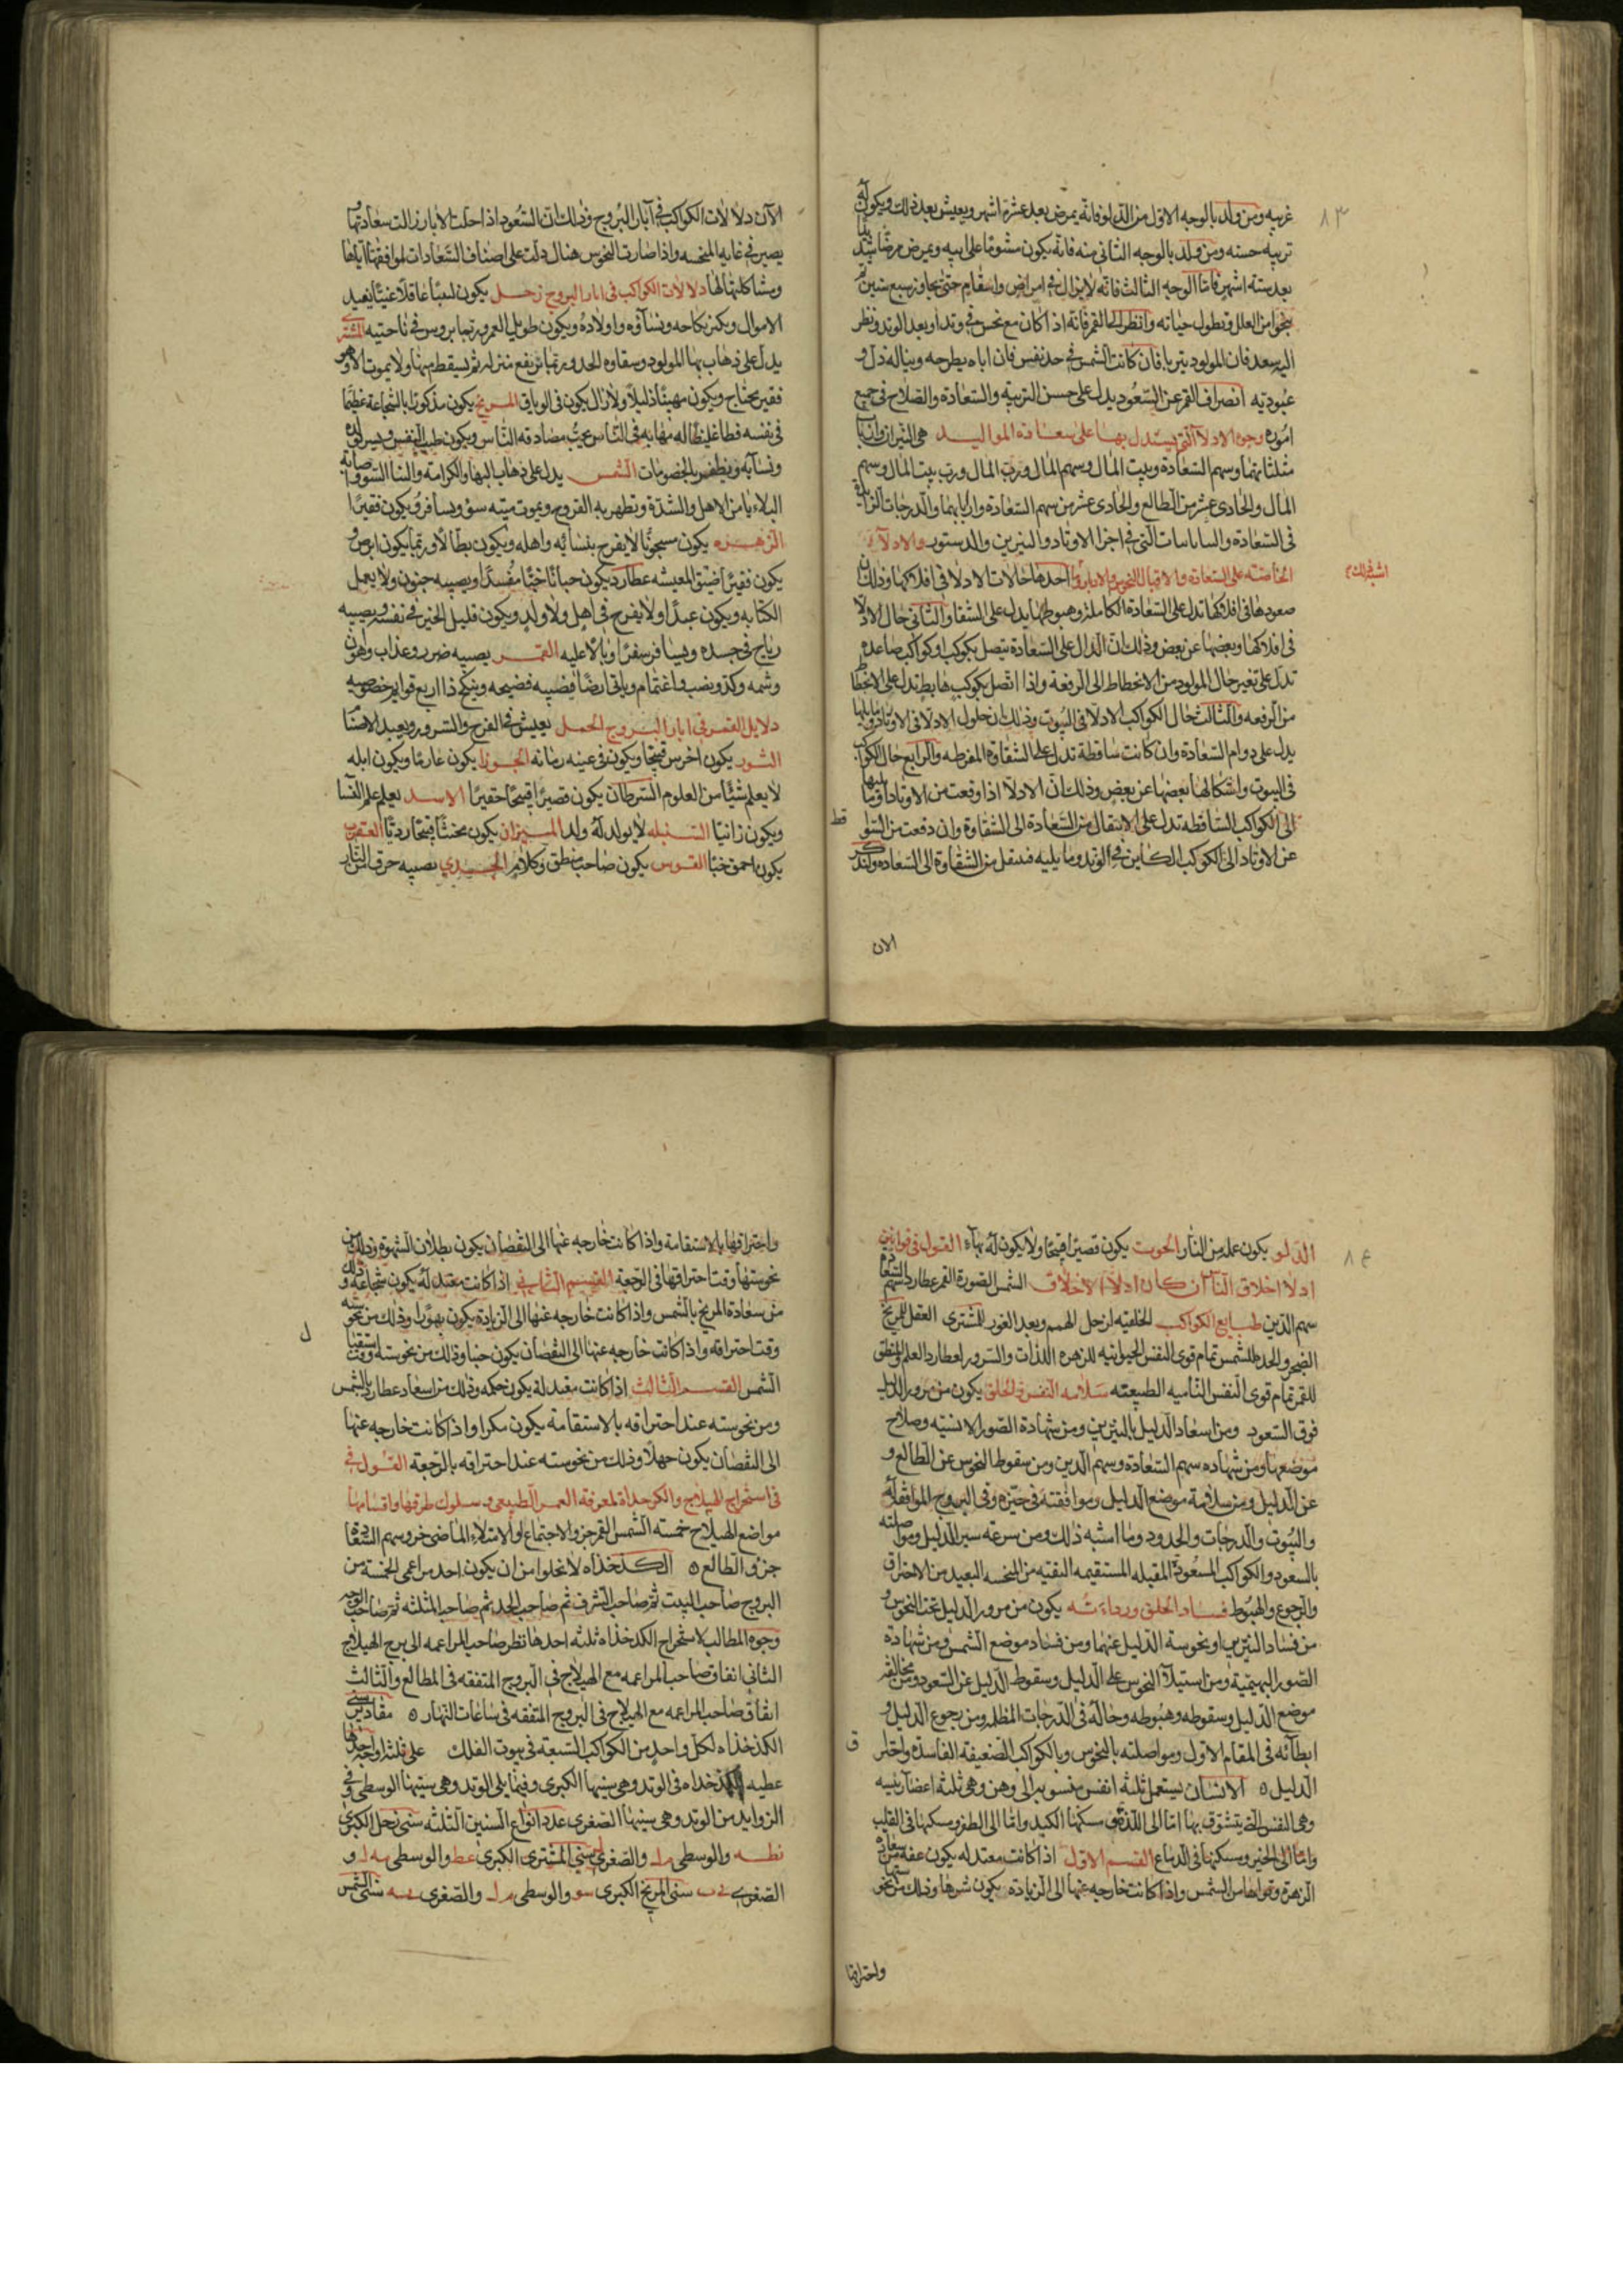 ٨٣
غريبه ومن ولد بالوجه الاول من الدلو فانه يمرض بعد عشرة اشهر ويعيش بعد ذلك ويكون له
تربيه حسنه ومن ولد بالوجه الثانى منه فانه يكون مشوما على ابيه ويمرض مرضا شديدا
بعد سته اشهر فاما الوجه الثالث فانه لا يزال فى امراض واسقام حتى يجاوز سبع سنين ثم
ينجوا من العلل وتطول حياته وانظر الى القمر فانه اذا كان مع نحس فى وتد او بعد الوتد ونظر
اليه سعد فان المولود يتربا فان كانت الشمس فى حد نفس فان اباه يطرحه ويناله ذل و
عبوديه انصراف القمر عن السعود يدل على حسن التربيه والسعادة والصلاح فى جميع
اموره وجوه الادلا التى يستدل بها على سعادة المواليد هى النيران وارباب
مثلثاتهما وسهم السعادة وبيت المال وسهم المال ورب المال ورب بيت المال وسهم
المال والحادى عشر من الطالع والحادى عشر من سهم السعادة واربابهما والدرجات الزايدة
فى السعادة والساباسات التى فى اجزا الاوتاد والنيرين والدستور والادلا
الخاصته على السعاده والاقبال النحوس والابار احدها حالات الادلا فى افلاكها وذلك ان
صعودها فى افلاكها تدل على السعادة الكاملة وهبوطها يدل على الشقا والثانى حال الادلا
فى افلاكها وبعضها عن بعض وذلك ان الدال على السعادة يتصل بكوكب او كواكب صاعده
تدل على تغير حال المولود من الانحطاط الى الرفعة واذا اتصل بكوكب هابط تدل على الانحطاط
من الرفعه والثالث حال الكواكب الادلا فى البيوت وذلك ان حلول الادلا فى الاوتاد وما يليها
يدل على دوام السعادة وان كانت ساقطة تدل على الشقاوة المفرطه والرابع حال الكواكب
فى البيوت واشكالها بعضها عن بعض وذلك ان الادلا اذا وقعت من الاوتاد او ما يليها
الى الكواكب الساقطه تدل على الانتقال من السعادة الى الشقاوة وان دفعت من السواقط
عن الاوتاد الى الكوكب الكاين فى الوتد وما يليه فينتقل من الشقاوة الى السعاده ولنذكر
الان
الآن دلالات الكواكب فى آبار البروج وذلك ان السعود اذا حلت الابار زالت سعادتها و
يصير فى غايه المنحسه واذا صارت النحوس هنال دلت على اصناف السعادات لموافقتها اياها
ومشاكلتها لها دلالات الكواكب فى ابار البروج زحل يكون لبيبا عاقلا غنيا يفيد
الاموال ويكثر نكاحه ونساؤه واولاده ويكون طويل العمر وربما يروس فى ناحيته المشترى
يدل على ذهاب بها المولود وسقاوه الحد وربما ترتفع منزلته ثم يسقط منها ولا يموت الا وهو
فقير يحتاج ويكون مهينا ذليلا ولا زال يكون فى الوباق المريخ يكون مذكورا بالشجاعة عظيما
فى نفسه فظا غليظا له مهابه فى الناس يحب مصادقه الناس ويكون طيب النفس ويسر بولده
ونسآيه ويظفر بالخصومات الشمس يدل على ذهاب البها والكرامة والثنا السوو اصابة
البلاء يا من الاهل والشدة وتظهر به القروح ويموت ميته سؤ ويسافر ويكون فقيرا
الزهره يكون مسجونا لا يفرح بنسائيه واهله ويكون بطالا وربما يكون ابرص و
يكون فقيرا ضيق المعيشه عطارد يكون حبانا خبا مفسدا ويصيبه جنون ولا يعمل
الكتابه ويكون عبدا ولا يفرح فى اهل ولا ولد ويكون قليل الخير فى نفسه ويصيبه
رياح فى جسده ويسافر سفرا وبالا عليه القمر يصيبه ضرر وعذاب وهوان
وشمه وكد ونصب واغتمام وياتى ارضا فيصيبه فضيحه وينكح ذا اربع قوايم خصوصيه
دلايل القمر فى ابار البروج الحمل يعيش فى الفرح والسرور ويعبد الاصناما
الثور يكون اخرس قبيحا ويكون فى عينه زمانه الجوزا يكون غارما ويكون ابله
لا يعلم شيئا من العلوم السرطان يكون قصيرا قبيحا حقيرا الاسد يعلم علم النسآ
ويكون زانيا السنبله لا يولد له ولد الميزان يكون مخنثا قبيحا رديا العقرب
يكون احمق خبا القوس يكون صاحب منطق وكلام الجدى يصيبه حرق النار
٨٤
الدلو يكون عمله من النار الحوت يكون قصيرا قبيحا ولا يكون له بهآء القول فى قوانين
ادلا اخلاق الناس كان ادلا الاخلاق الشمس الصورة القمر عطارد سهم السعادة
سهم الدين طبايع الكواكب الخلقيه لزحل الهمم وبعد الغور للمشترى العقل للمريخ
الضجر والحدة للشمس تمام قوى النفس الحيوانيه للزهره اللذات والسرور لعطارد العلم والمنطق
للقمر تمام قوى النفس الناميه الطبيعيه سلامه النفس والخلق يكون من مرور الدليل
فوق السعود ومن اسعاد الدليل بالنيرين ومن شهادة الصور الانسيه وصلاح
موضعها ومن شهاده سهم السعادة وسهم الدين ومن سقوط النحوس عن الطالع و
عن الدليل ومن سلامة موضع الدليل وموافقته فى حيزه وفى البروج الموافقه له
والبيوت والدرجات والحدود وما اشبه ذلك ومن سرعه سير الدليل ومواصلته
بالسعود والكواكب المسعودة المقبله المستقيمه النقيه من المنحسه البعيد من الاحتراق
والرجوع والهبوط فساد الخلق ورداءته يكون من مرور الدليل تحت النحوس و
من فساد النيرين او نحوسة الدليل عنهما ومن فساد موضع الشمس ومن شهادة
الصور البهيمية ومن استيلآ النحوس على الدليل وسقوط الدليل عن السعود ومن مخالفه
موضع الدليل وسقوطه وهبوطه وحاله فى الدرجات المظلمه ومن رجوع الدليل و
ابطآئه فى المقام الاول ومواصلته بالنحوس وبالكواكب الضعيفه الفاسدة واحتراق
الدليل ٥ الانسان يستعمل ثلثه انفس منسوبه الى وهن وهى ثلثه اعضآ رئيسه
وهى النفس التى يتشوق بها اما الى اللذة ومسكنها الكبد واما الى الظفر ومسكنها فى القلب
واما الى الخير ومسكنها فى الدماغ القسم الاول اذا كانت معتدله يكون عفه من سعادة
الزهرة وقوابها من الشمس واذا كانت خارجه عنها الى الزيادة يكون شرها وذلك من نحوستها
واحتراقها
واحتراقها بالاستقامة واذا كانت خارجه عنها الى النقصان يكون بطلان الشهوة وذلك من
نحوستها وقت احتراقها فى الرجعه القسم الثانى اذا كانت معتدله يكون شجاعة وذلك
من سعادة المريخ بالشمس واذا كانت خارجه عنها الى الزيادة يكون بهورا وذلك من نحوسته
وقت احتراقه واذا كانت خارجه عنها الى النقصان يكون حبنا وذلك من نحوسته وقت استقبال
الشمس القسم الثالث اذا كانت معتدلة يكون حكمه وذلك من اسعاد عطارد بالشمس
ومن نحوسته عند احتراقه بالاستقامة يكون مكرا واذا كانت خارجه عنها
الى النقصان يكون جهلا وذلك من نحوسته عند احتراقه بالرجعة القول فى
فى استخراج الهيلاج والكدخداة لمعرفة العمر الطبيعى وسلوك طرقها واقسامها
مواضع الهيلاج خمسته الشمس القمر جزو الاجتماع او الامتلاء الماضى جزو سهم السعادة
جزو الطالع ٥ الكدخذاه لا يخلوا من ان يكون احد مزاعمى الخمسة من
البروج صاحب البيت ثم صاحب الشرف ثم صاحب الحد ثم صاحب المثلثه ثم صاحب الوجه
وجوه المطالب لاستخراج الكدخذاه ثلثه احدها نظر صاحب المزاعمه الى برج الهيلاج
الثانى اتفاق صاحب المزاعمه مع الهيلاج فى البروج المتفقه فى المطالع والثالث
اتفاق صاحب المزاعمه مع الهيلاج فى البروج المتفقه فى ساعات النهار ٥ مقادير سنى
الكدخذاه لكل واحد من الكواكب السبعه فى بيوت الفلك على ثلثه اوجه احدها
عطيه الكدخداه فى الوتد وهى سنيها الكبرى وفيما يلى الوتد وهى سنيها الوسطى وفى
الزوايد من الوتد وهى سنيها الصغرى عدد انواع السنين الثلثه سنى زحل الكبرى
والوسطى والصغرى سنى المشترى الكبرى عط والوسطى و
الصغرى سنى المريخ الكبرى سو والوسطى والصغرى سنى الشمس